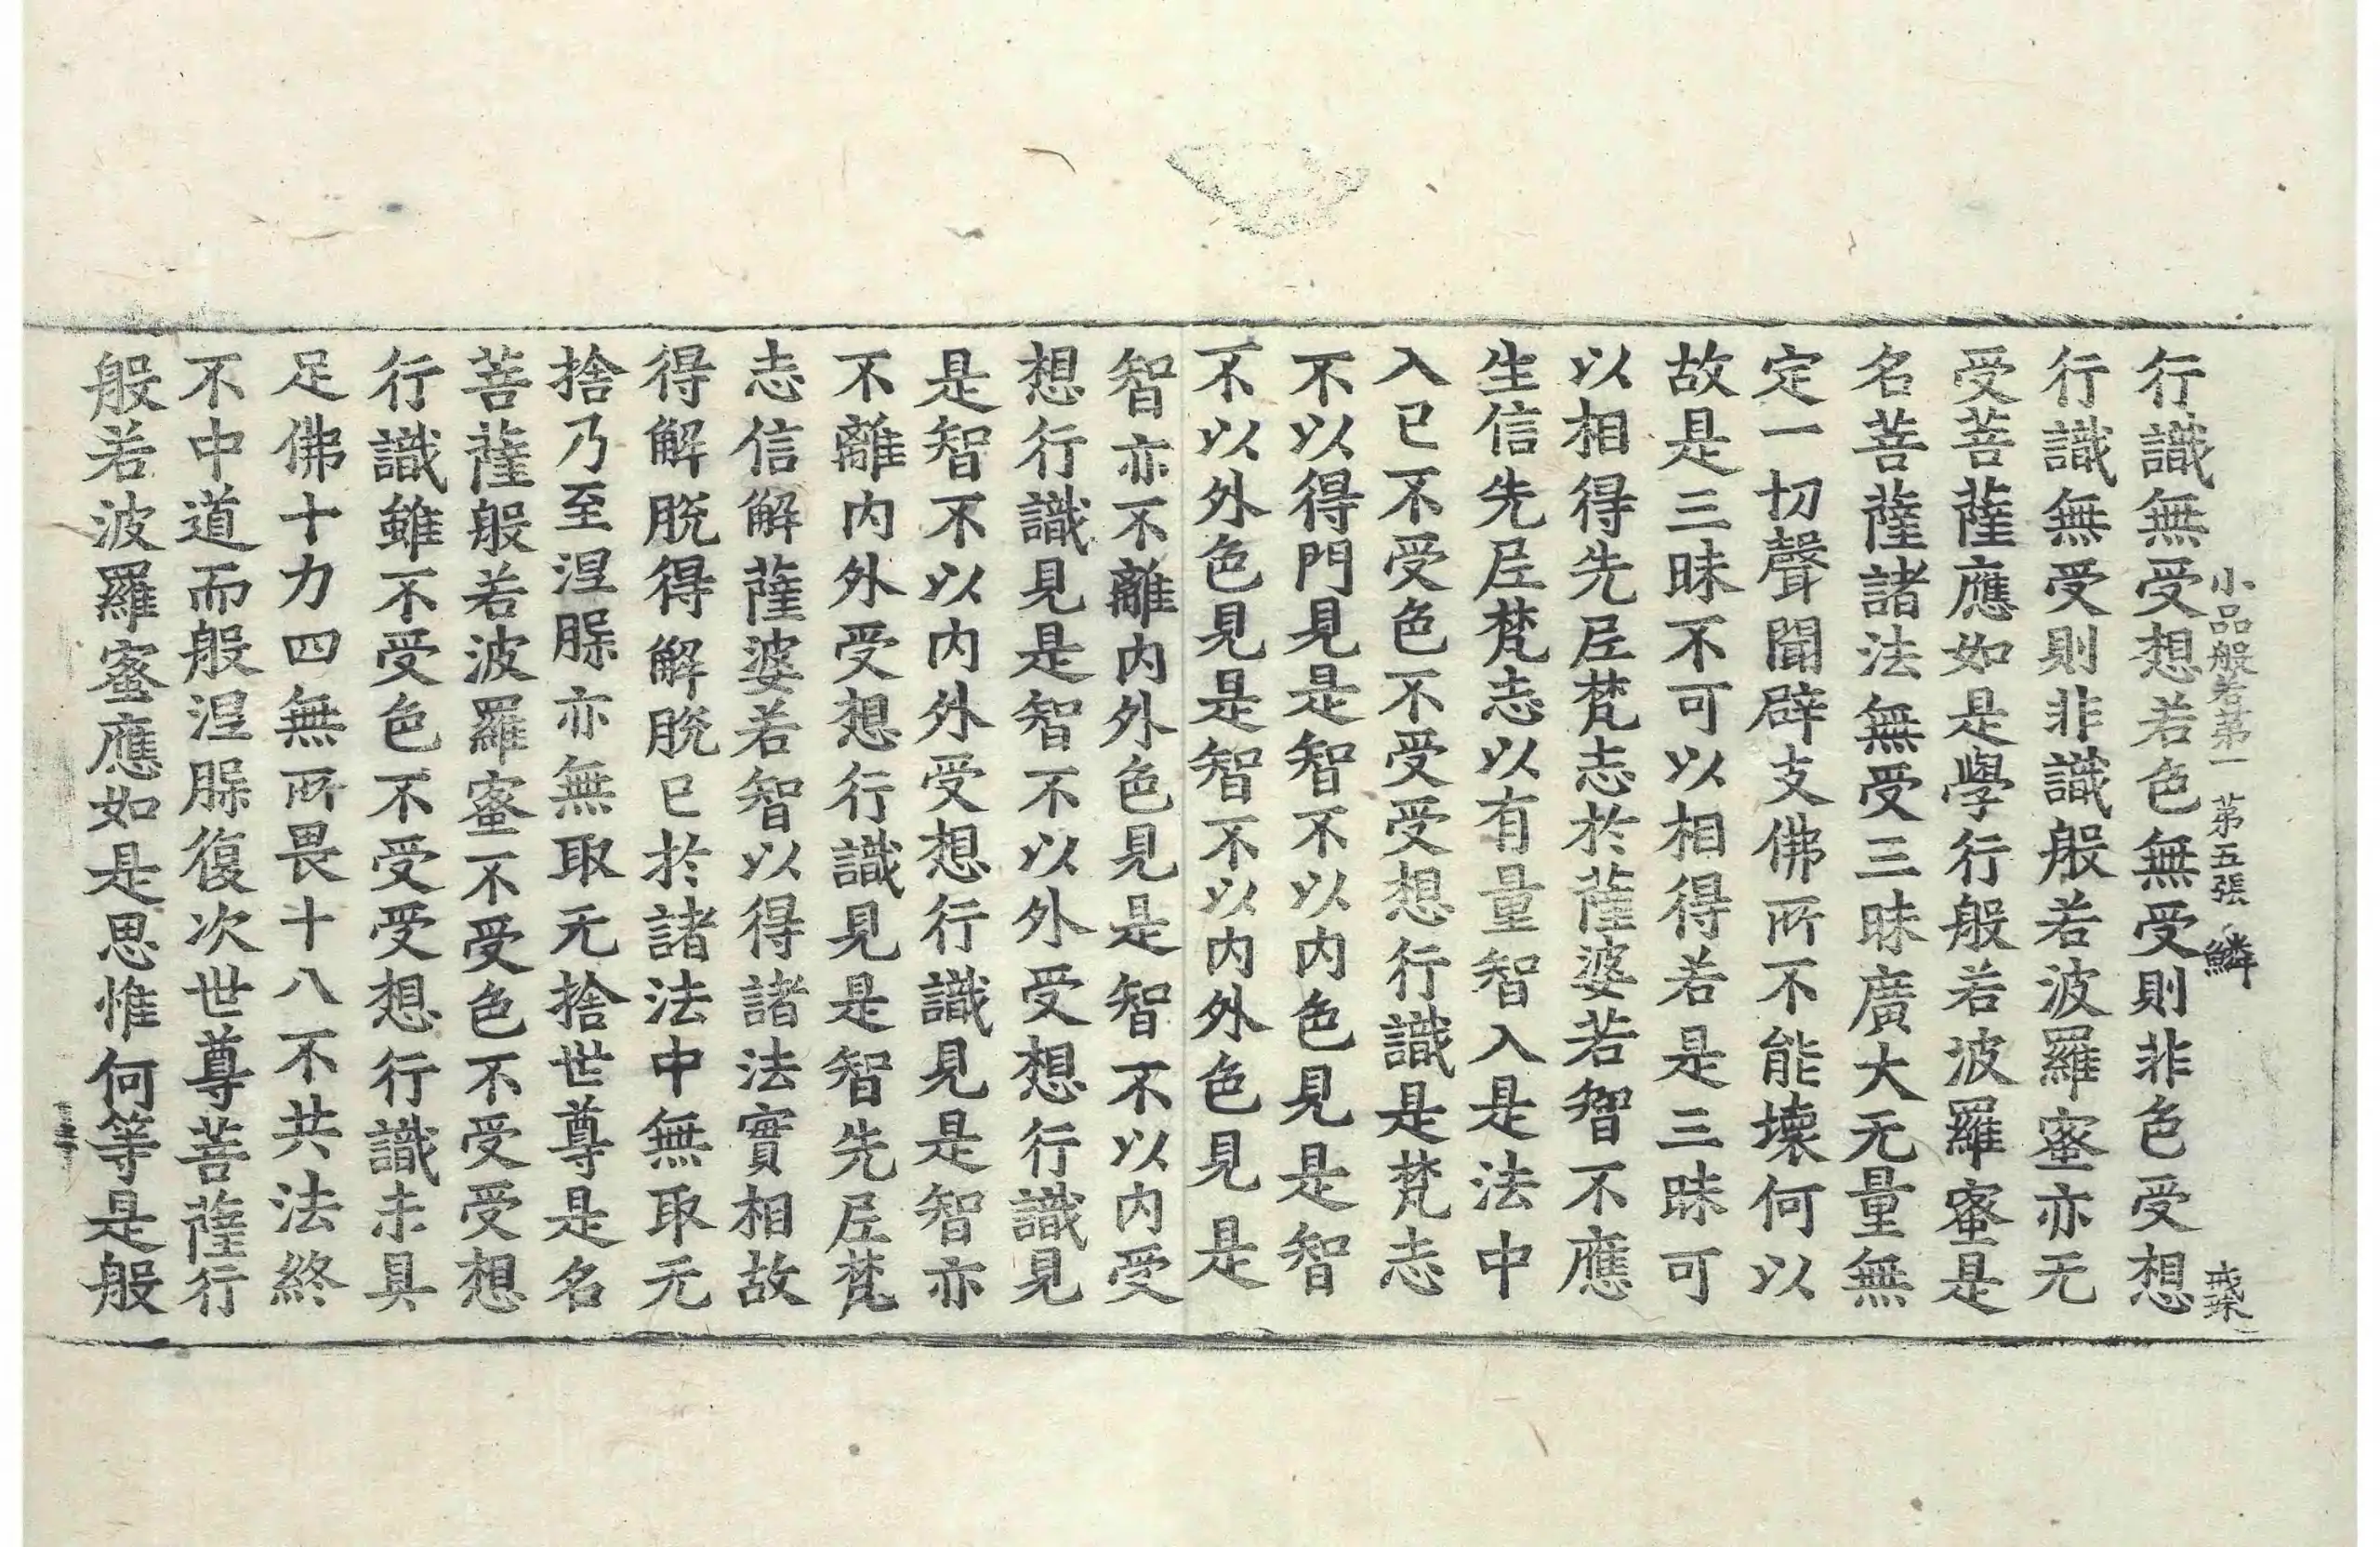 小品般若第一 第五張 鱗
行識無受想若色無受則非色受想
行識無受則非識般若波羅蜜亦无
受菩薩應如是學行般若波羅蜜是
名菩薩諸法無受三昧廣大无量無
定一切聲聞辟支佛所不能壞何以
故是三昧不可以相得若是三昧可
以相得先尼梵志於薩婆若智不應
生信先尼梵志以有量智入是法中
入已不受色不受受想行識是梵志
不以得門見是智不以内色見是智
不以外色見是智不以内外色見是
智亦不離内外色見是智不以内受
想行識見是智不以外受想行識見
是智不以内外受想行識見是智亦
不離内外受想行識見是智先尼梵
志信解薩婆若智以得諸法實相故
得解脫得解脫已於諸法中無取无
捨乃至涅槃亦無取无捨世尊是名
菩薩般若波羅蜜不受色不受受想
行識雖不受色不受受想行識未具
足佛十力四無所畏十八不共法終
不中道而般涅槃復次世尊菩薩行
般若波羅蜜應如是思惟何等是般